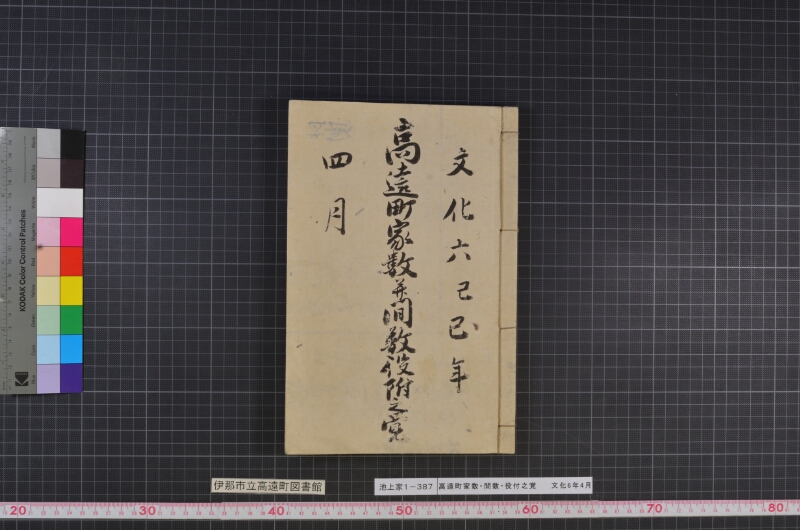 文化六己巳年
高遠町家数并間数役附之覚
四月
伊那市立高遠町図書館
池上家1－387 高遠町家数・間数・役付之覚 文化6年4月
KODAK Color Control Patches
20 30 40 50 60 70 80